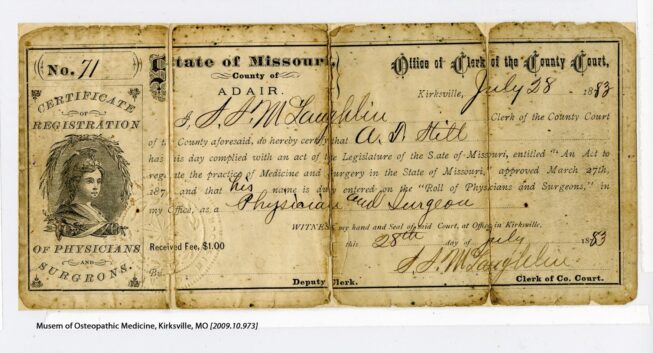 No. 71
CERTIFICATE
OF
REGISTRATION
OF PHYSICIANS
AND
SURGEONS.
State of Missouri,
County of
ADAIR.
Office of Clerk of the County Court,
Kirksville, July 28 1883
I, S. S. McLaughlin Clerk of the County Court
of the County aforesaid, do hereby certify that A. T. Still
has this day complied with an act of the Legislature of the State of Missouri, entitled "An Act to
regulate the practice of Medicine and Surgery in the State of Missouri," approved March 27th,
187 and that his name is duly entered on the "Roll of Physicians and Surgeons," in
my Office, as a Physician and Surgeon
WITNESS my hand and Seal of said Court, at Office in Kirksville.
this 28th day of July 1883
Received Fee, $1.00
S. S. McLaughlin
By
Deputy Clerk.
Clerk of Co. Court.
Musem of Osteopathic Medicine, Kirksville, MO [2009.10.973]